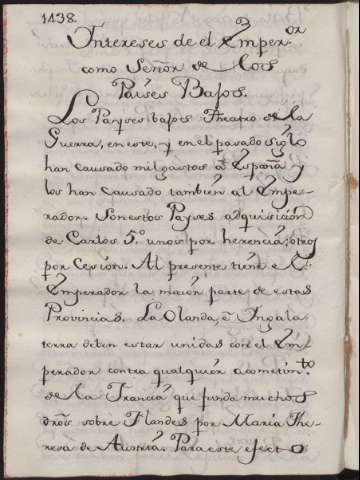 1138.
Intereses de el Emper.or
como Señor de los
Países Bajos.
Los Payses bajos Theatro de la
Guerra, en este, y en el pasado siglo
han causado mil gastos à España y
los han causado tambien al Empe-
rador. Son estos Payses adquisicion
de Carlos 5.º unos por herencia, otros
por Cesion. Al presente tiene el
Emperador la maior parte de estas
Provincias. La Olanda, è Ingala-
terra deben estar unidas con el Em-
perador contra qualquier acometim.to
de la Francia que funda muchos
dros sobre Flandes por Maria The-
resa de Austria. Para este efecto